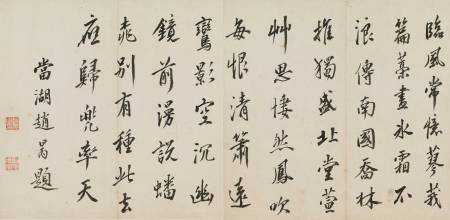 臨風常憶蓼莪
篇藁畫氷霜不
浪傳南國喬林
推獨盛北堂萱
艸思悽然鳳吹
每恨清簫遠
鸞影空沉幽
鏡前漫說蟠
桃別有種此去
應歸兜率天
當湖趙題